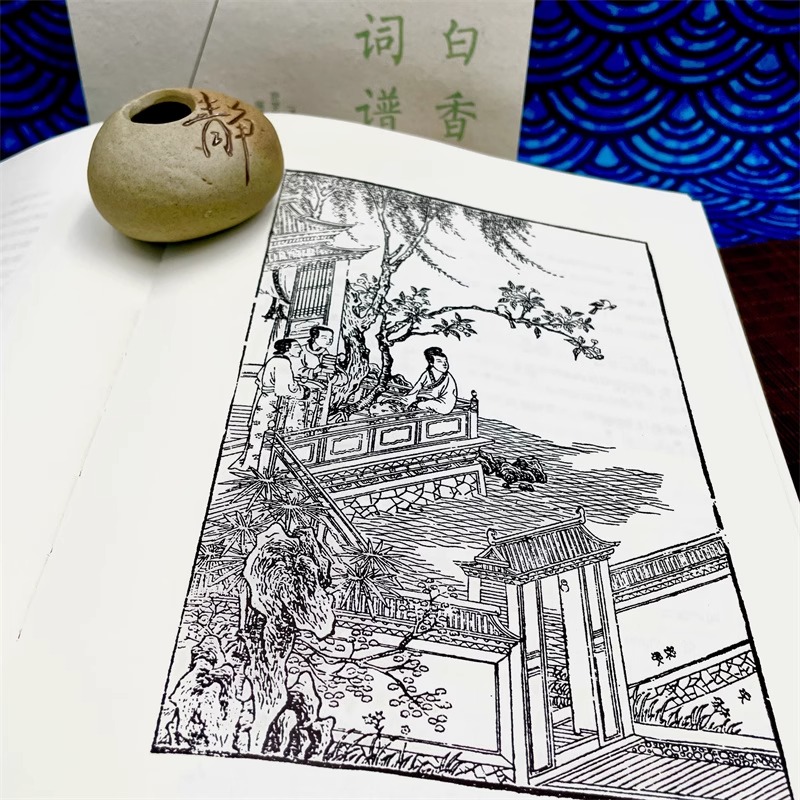 白香
词谱
静